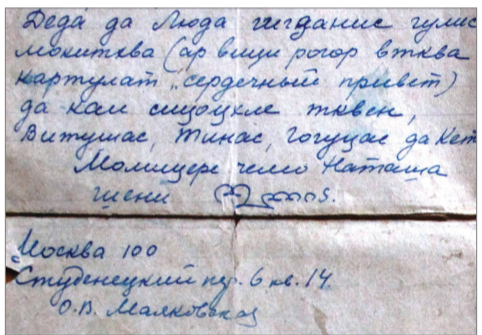 Деда да Люда гигданис гулис
мокитква (ар вици рогор втква
картулат „сердечный привет)
да каи сицоцхле тквен,
Витушас, Тинас, Гогуцас да Кет
Момицере чемо Наташа
шени
Москва 100
Студенецкий пер. 6 кв. 14.
О.В. Маяковская